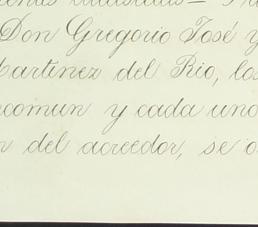 Don Gregorio José y
Martinez del Rio, los
comun y cada uno
del acreedor, se o